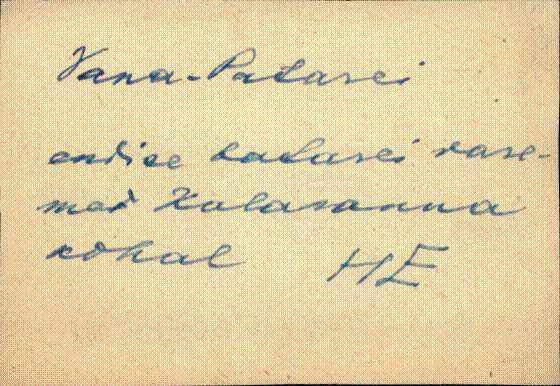 Vana-Patarei
endise patarei vare-
med Kalaranna
kohal HE